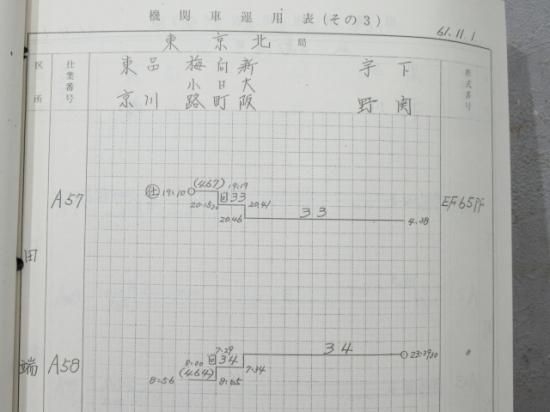 機関車運用表(その3)
61.11.1
東京北局
区所
仕業番号
東京
品川
梅小路
向日町
新大阪
宇野
下関
形式番号
田端
A57
仕 19:10 (467) 19:19
回 33
20:41
20:46
33
4:38
EF65PF
A58
7:29
8:00 回 34
34
(464) 7:34
8:56 8:05